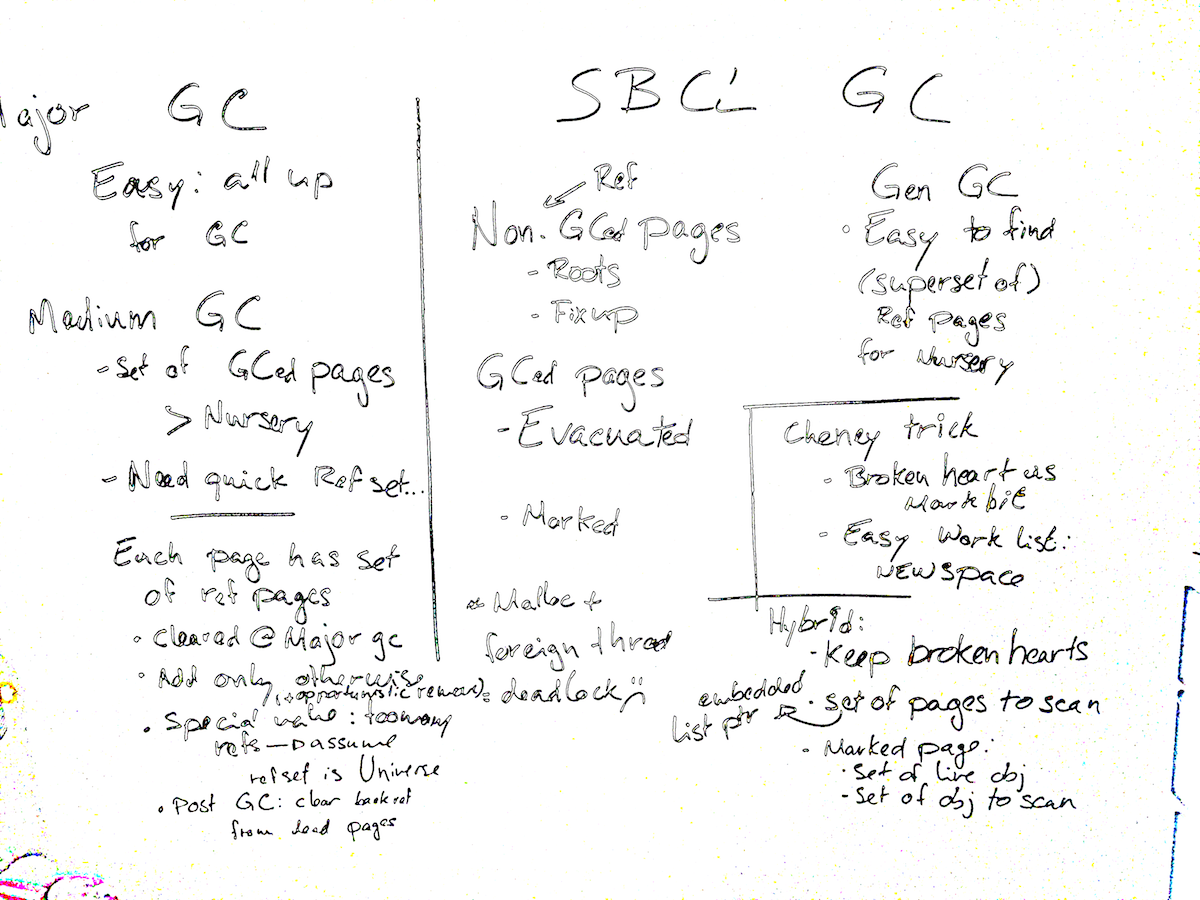 Major GC
Easy: all up
for GC
Medium GC
- Set of GCed pages
> Nursery
- Need quick Ref set...
Each page has set
of ref pages
• Cleared @ Major gc
• Add only otherwise
(+ opportunistic removes)
• Special value: too many
refs → assume
refset is Universe
• Post GC: clear backref
from dead pages
SBCL GC
Ref
Non-GCed pages
- Roots
- Fixup
GCed pages
- Evacuated
- Marked
* Malloc +
foreign thread
= deadlock :(
Gen GC
• Easy to find
(superset of)
Ref pages
for Nursery
Cheney trick
- Broken heart as
Mark bit
- Easy Work list:
NEWSPACE
Hybrid:
- Keep broken hearts
• set of pages to scan
embedded
list ptr
• Marked page:
• set of live obj
- Set of obj to scan